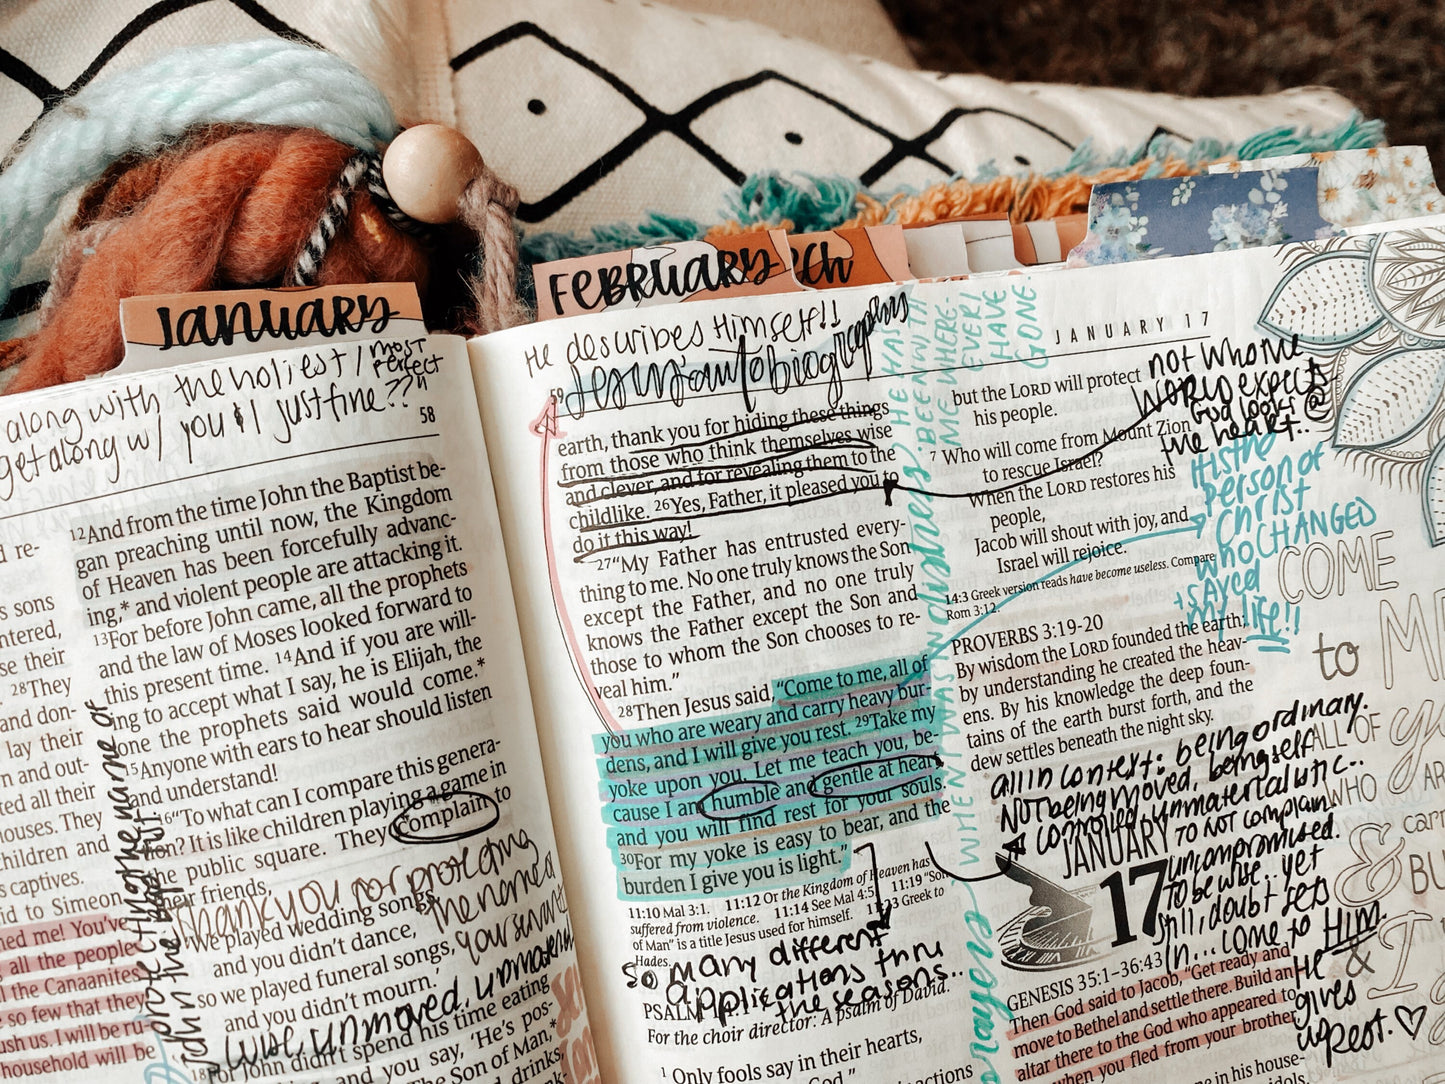 JANUARY
FEBRUARY
ch
along with the holiest / most
perfect"
get along w/ you & I just fine??
58
d re-
s sons
ntered,
se their
28They
and don-
lay their
n and out-
red all their
louses. They
children and
s captives.
id to Simeon
ned me! You've
g all the people
l the Canaanites
e so few that they
ush us, I will be ru-
household will be
12And from the time John the Baptist be-
gan preaching until now, the Kingdom
of Heaven has been forcefully advanc-
ing,* and violent people are attacking it.
13For before John came, all the prophets
and the law of Moses looked forward to
this present time. 14And if you are will-
ing to accept what I say, he is Elijah, the
one the prophets said would come.*
15Anyone with ears to hear should listen
and understand!
16"To what can I compare this genera-
tion? It is like children playing a game in
the public square. They complain to
their friends,
Thank you for protecting
the name of
'We played wedding songs,
and you didn't dance,
so we played funeral songs,
and you didn't mourn.'
wise unmoved.
18For John didn't spend his time eating
and you say, 'He's pos-
The Son of Man,*
drinks,
John in the
He describes Himself!!
Jesus' autobiography
59
earth, thank you for hiding these things
from those who think themselves wise
and clever, and for revealing them to the
childlike. 26Yes, Father, it pleased you to
do it this way!
27"My Father has entrusted every-
thing to me. No one truly knows the Son
except the Father, and no one truly
knows the Father except the Son and
those to whom the Son chooses to re-
veal him."
28Then Jesus said, "Come to me, all of
you who are weary and carry heavy bur-
dens, and I will give you rest. 29Take my
yoke upon you. Let me teach you, be-
cause I am humble and gentle at heart,
and you will find rest for your souls.
30For my yoke is easy to bear, and the
burden I give you is light."
11:10 Mal 3:1. 11:12 Or the Kingdom of Heaven has
suffered from violence. 11:14 See Mal 4:5. 11:19 "Son
of Man" is a title Jesus used for himself. 11:23 Greek to
Hades.
so many different
applications thru
the seasons..
PSALM
For the choir director: A psalm of David.
1 Only fools say in their hearts,
God."
actions
WHEN I WAS IN distress. HE HAS
BEEN WITH
ME WHERE-
EVER I
HAVE
GONE
JANUARY 17
but the LORD will protect
his people.
7 Who will come from Mount Zion
to rescue Israel?
When the LORD restores his
people,
Jacob will shout with joy, and
Israel will rejoice.
14:3 Greek version reads have become useless. Compare
Rom 3:12.
not who the
world expects
God looks @
the heart..
it is the
person of
Christ
who CHANGED
+ saved
my life!!
PROVERBS 3:19-20
By wisdom the LORD founded the earth;
by understanding he created the heav-
ens. By his knowledge the deep foun-
tains of the earth burst forth, and the
dew settles beneath the night sky.
all in context: being ordinary.
NOT being moved, being self
controlled, unmaterialistic..
to not complain.
uncompromised.
to be wise.. yet
still, doubt sets
in... come to Him.
He
gives
rest. ♡
JANUARY
17
GENESIS 35:1–36:43
Then God said to Jacob, "Get ready and
move to Bethel and settle there. Build an
altar there to the God who appeared to
when you fled from your brother,
in his house-
idols.
COME
to ME
ALL OF
WHO AR
&
&
I